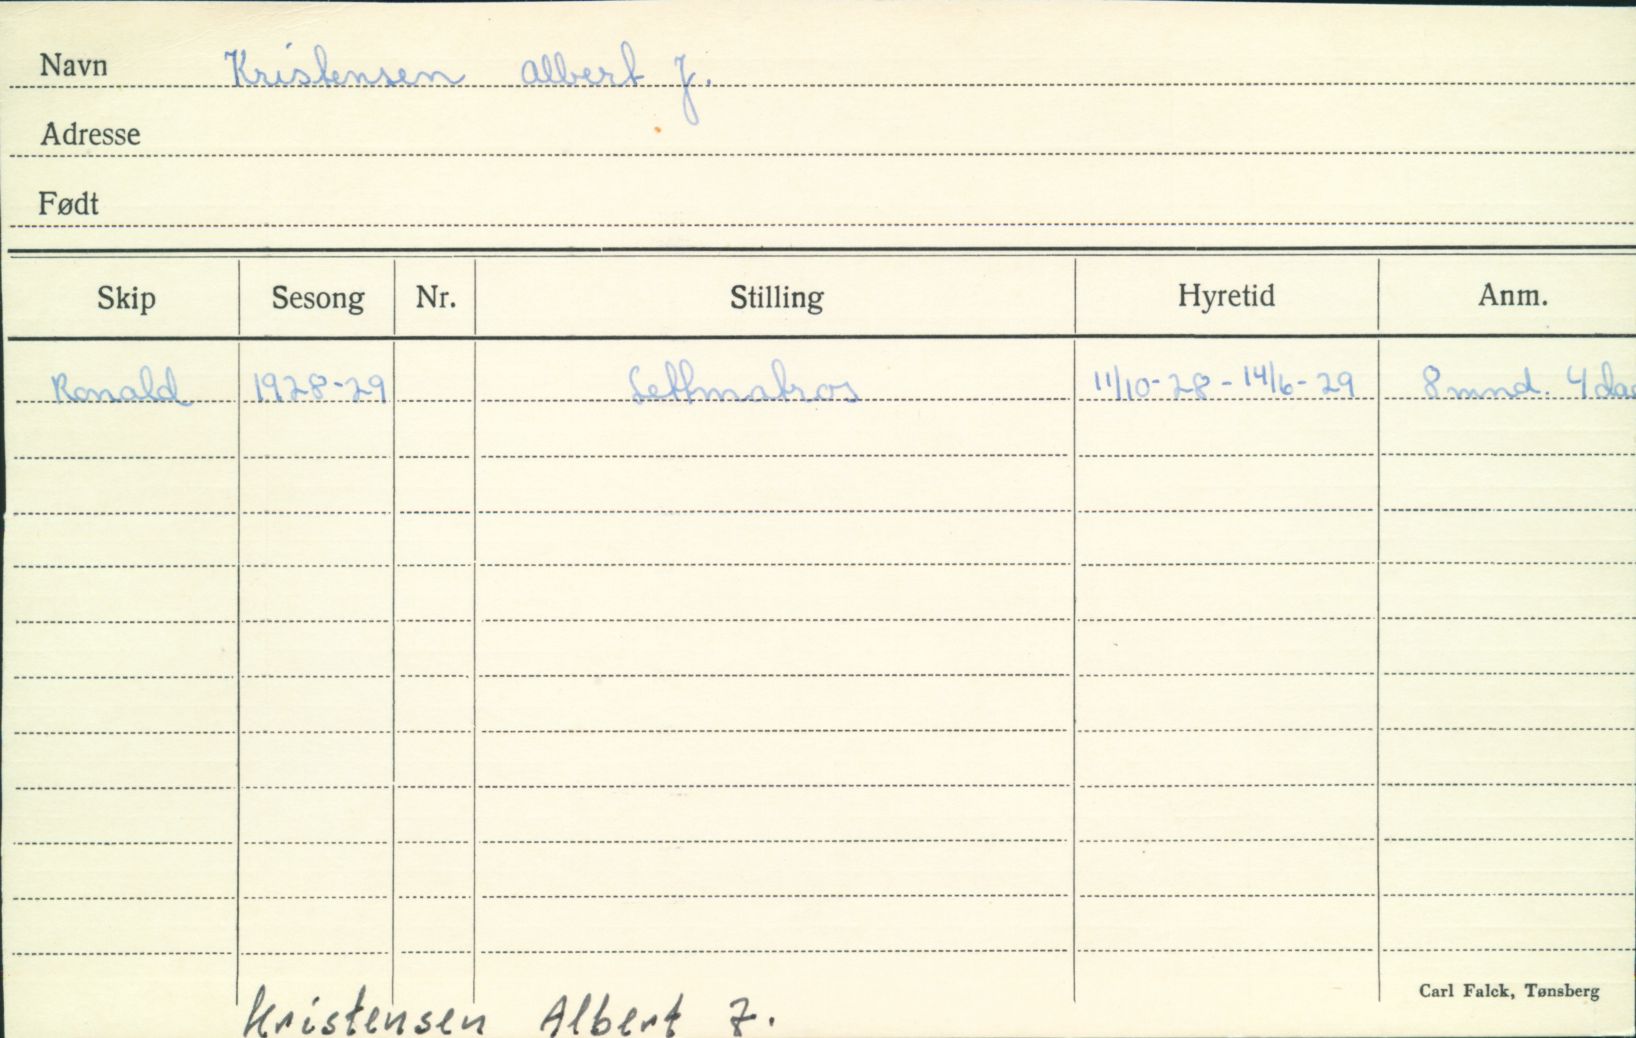 Navn Kristensen Albert J.
Adresse
Født
Skip Sesong Nr. Stilling Hyretid Anm.
Ronald 1928-29 Lettmatros 11/10-28 - 14/6-29 8 mnd. 4 dag
Kristensen Albert J.
Carl Falck, Tønsberg